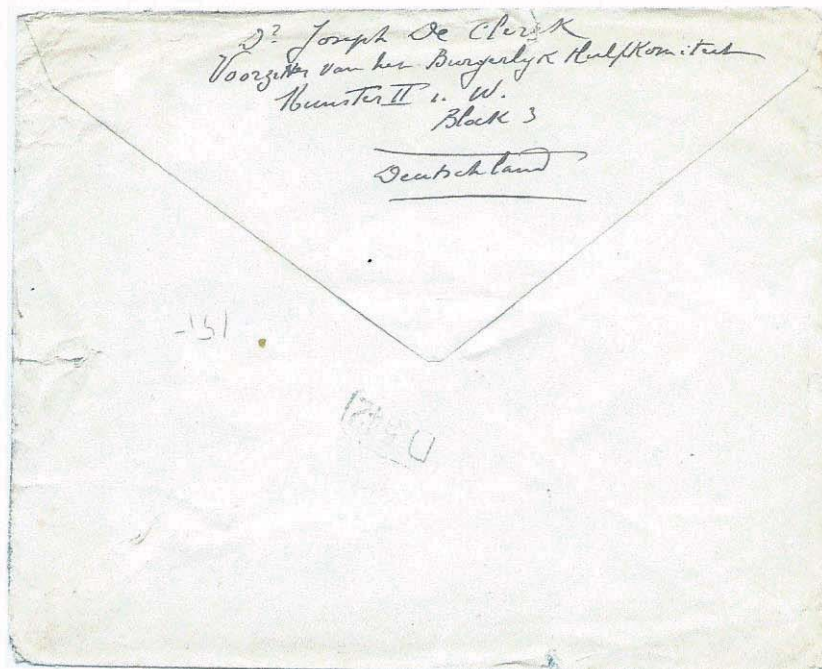 Dr Joseph De Clerck
Voorzitter van het Burgerlijk Hulpkomiteit
Munster II i. W.
Block 3
Deutschland